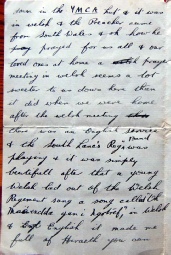 in the YMCA hut & it was
in welch & the Preacher came
from South Wales & oh how he
prayed for us all & our
loved ones at home a prayer
meeting in welch seems a lot
sweeter to us down here than
it did when we were home
after the welch meeting
there was an English service
& the South Lancs Regs Band
playing & it was simply
beautifull after that a young
Welch lad out of the Welsh
Regiment sang a song called
yn i Ngofid", in Welch
& English it made me
full of Hiraeth you can